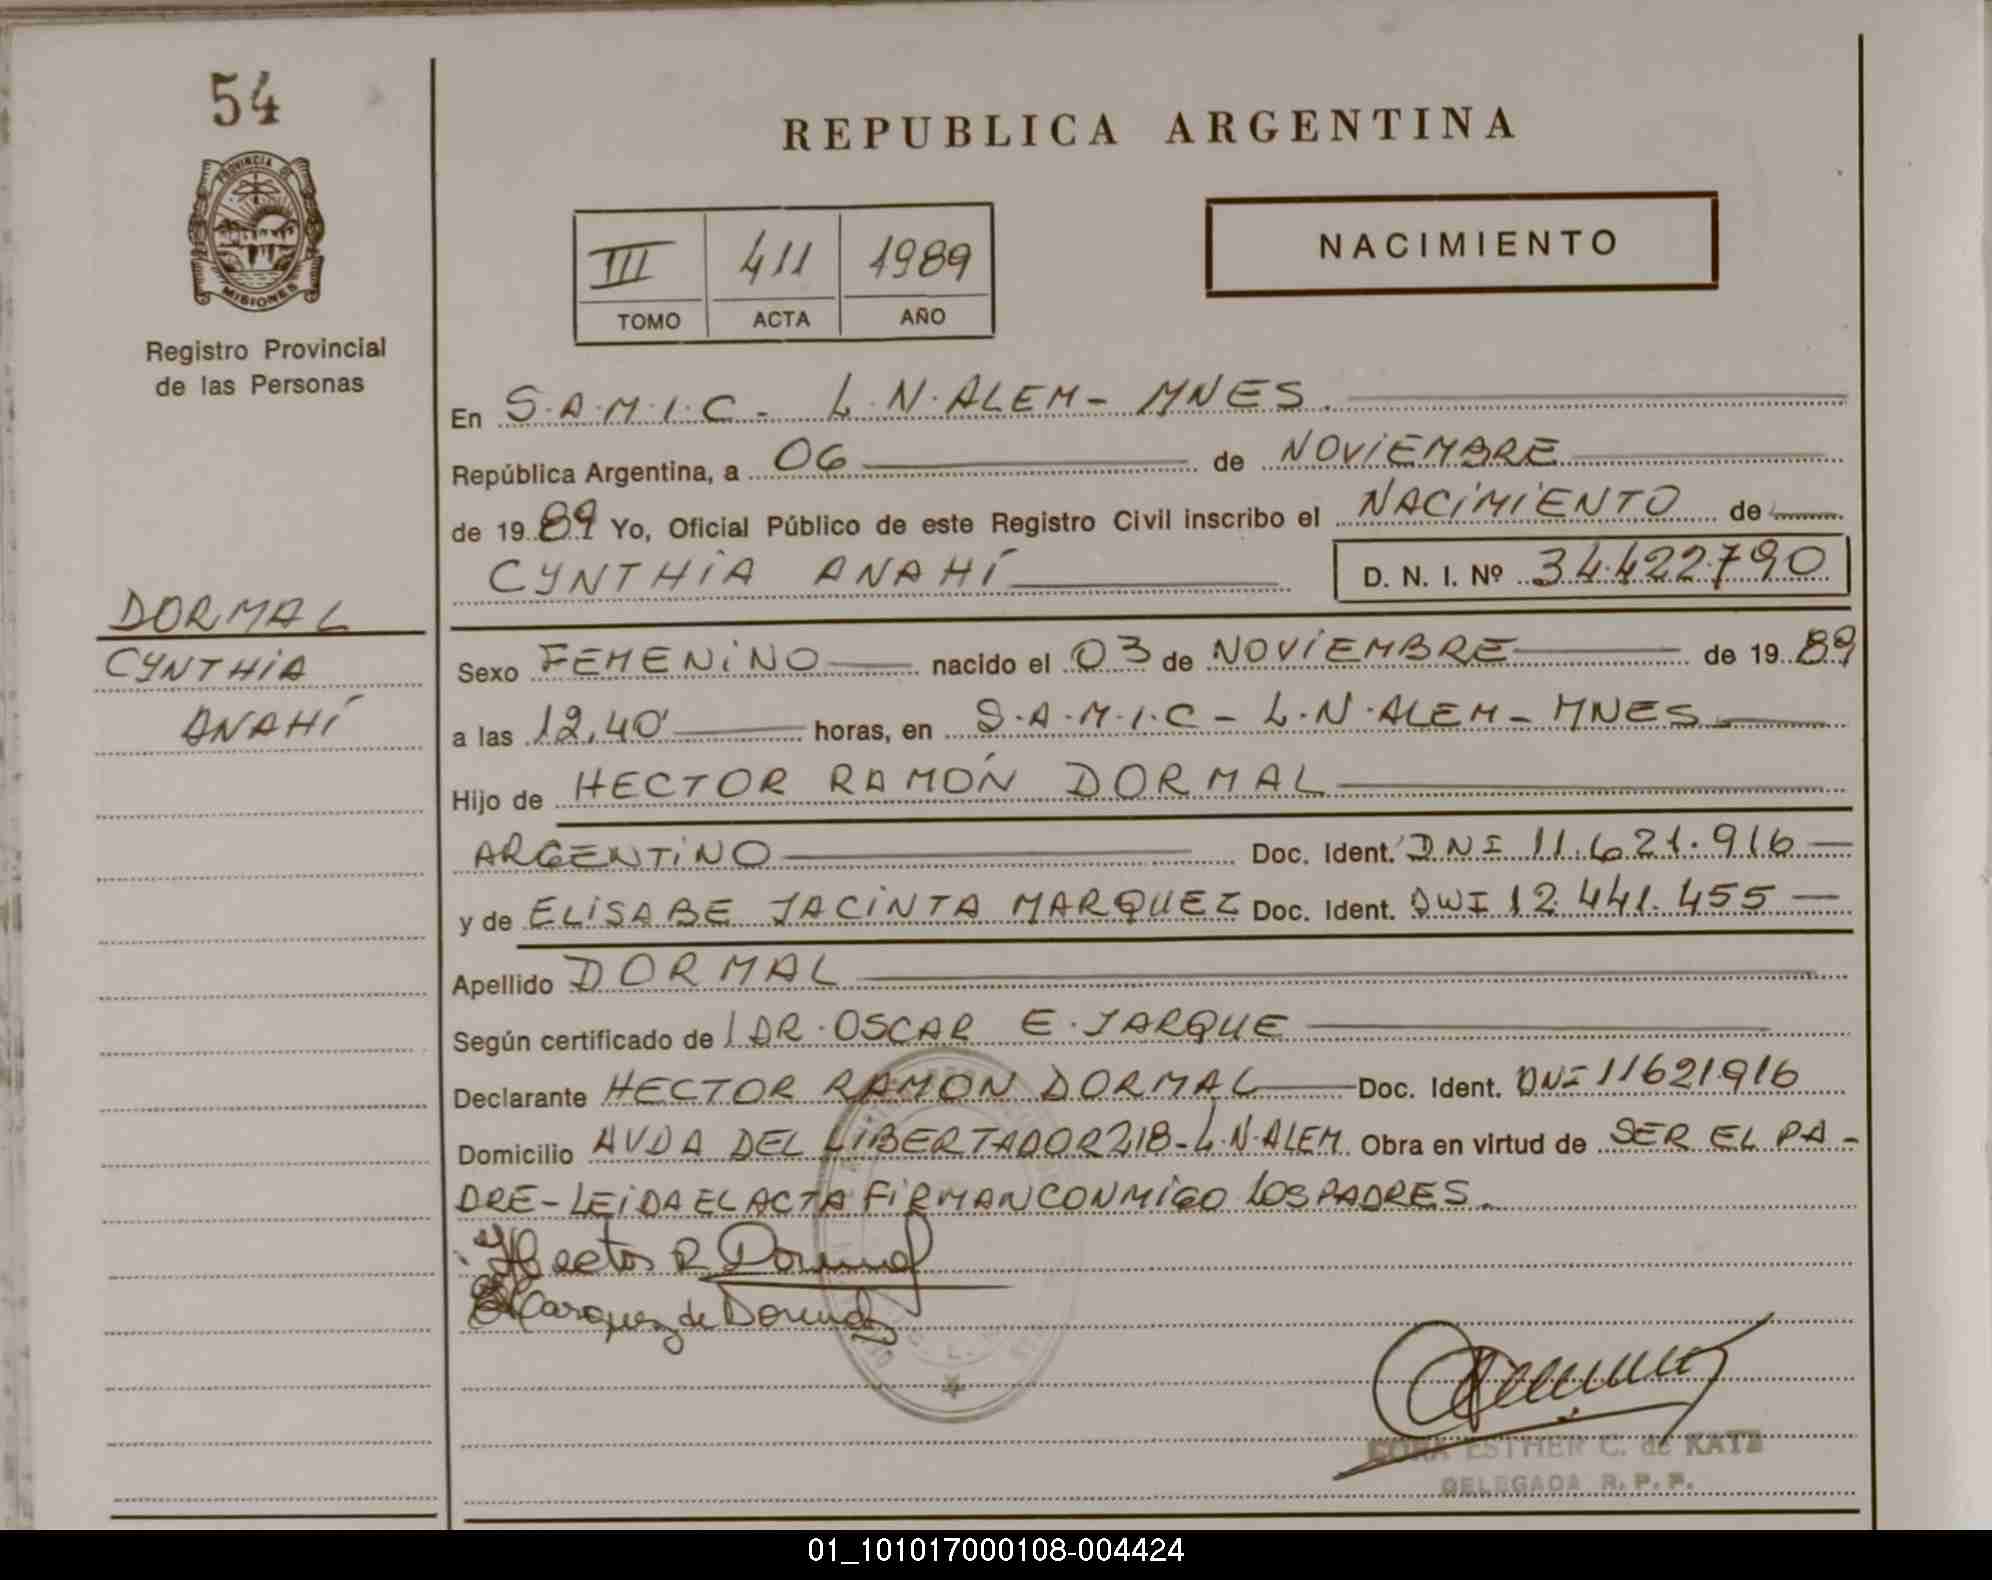 54
PROVINCIA DE
MISIONES
Registro Provincial
de las Personas
DORMAL
CYNTHIA
ANAHÍ
REPUBLICA ARGENTINA
III 411 1989
TOMO ACTA AÑO
NACIMIENTO
En S.A.M.I.C - L.N.ALEM - MNES.
República Argentina, a 06 de NOVIEMBRE
de 1989 Yo, Oficial Público de este Registro Civil inscribo el NACIMIENTO de
CYNTHIA ANAHÍ D. N. I. Nº 34.422790
Sexo FEMENINO nacido el 03 de NOVIEMBRE de 1989
a las 12,40' horas, en S.A.M.I.C - L.N.ALEM - MNES
Hijo de HECTOR RAMÓN DORMAL
ARGENTINO Doc. Ident. DNI 11.621.916
y de ELISABE JACINTA MARQUEZ Doc. Ident. DNI 12.441.455
Apellido DORMAL
Según certificado de DR. OSCAR E. JARQUE
Declarante HECTOR RAMON DORMAL Doc. Ident. DNI 11621916
Domicilio AVDA DEL LIBERTADOR 218 - L.N.ALEM Obra en virtud de SER EL PA-
DRE - LEIDA EL ACTA FIRMAN CONMIGO LOS PADRES.
Hector R Dormal
E Marquez de Dormal
CORA ESTHER C. de KATZ
DELEGADA R. P. P.
01_101017000108-004424